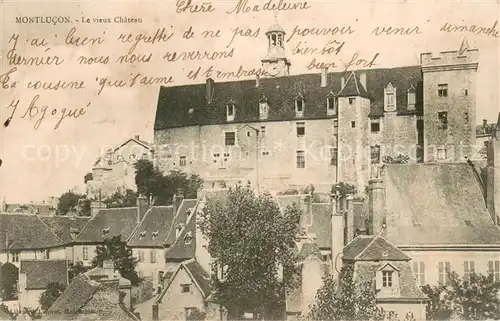 MONTLUÇON. - Le vieux Château
Chère Madeleine
J'ai bien regretté de ne pas pouvoir venir dimanche
dernier nous nous reverrons bientôt
Ta cousine que t'aime et t'embrasse bien fort